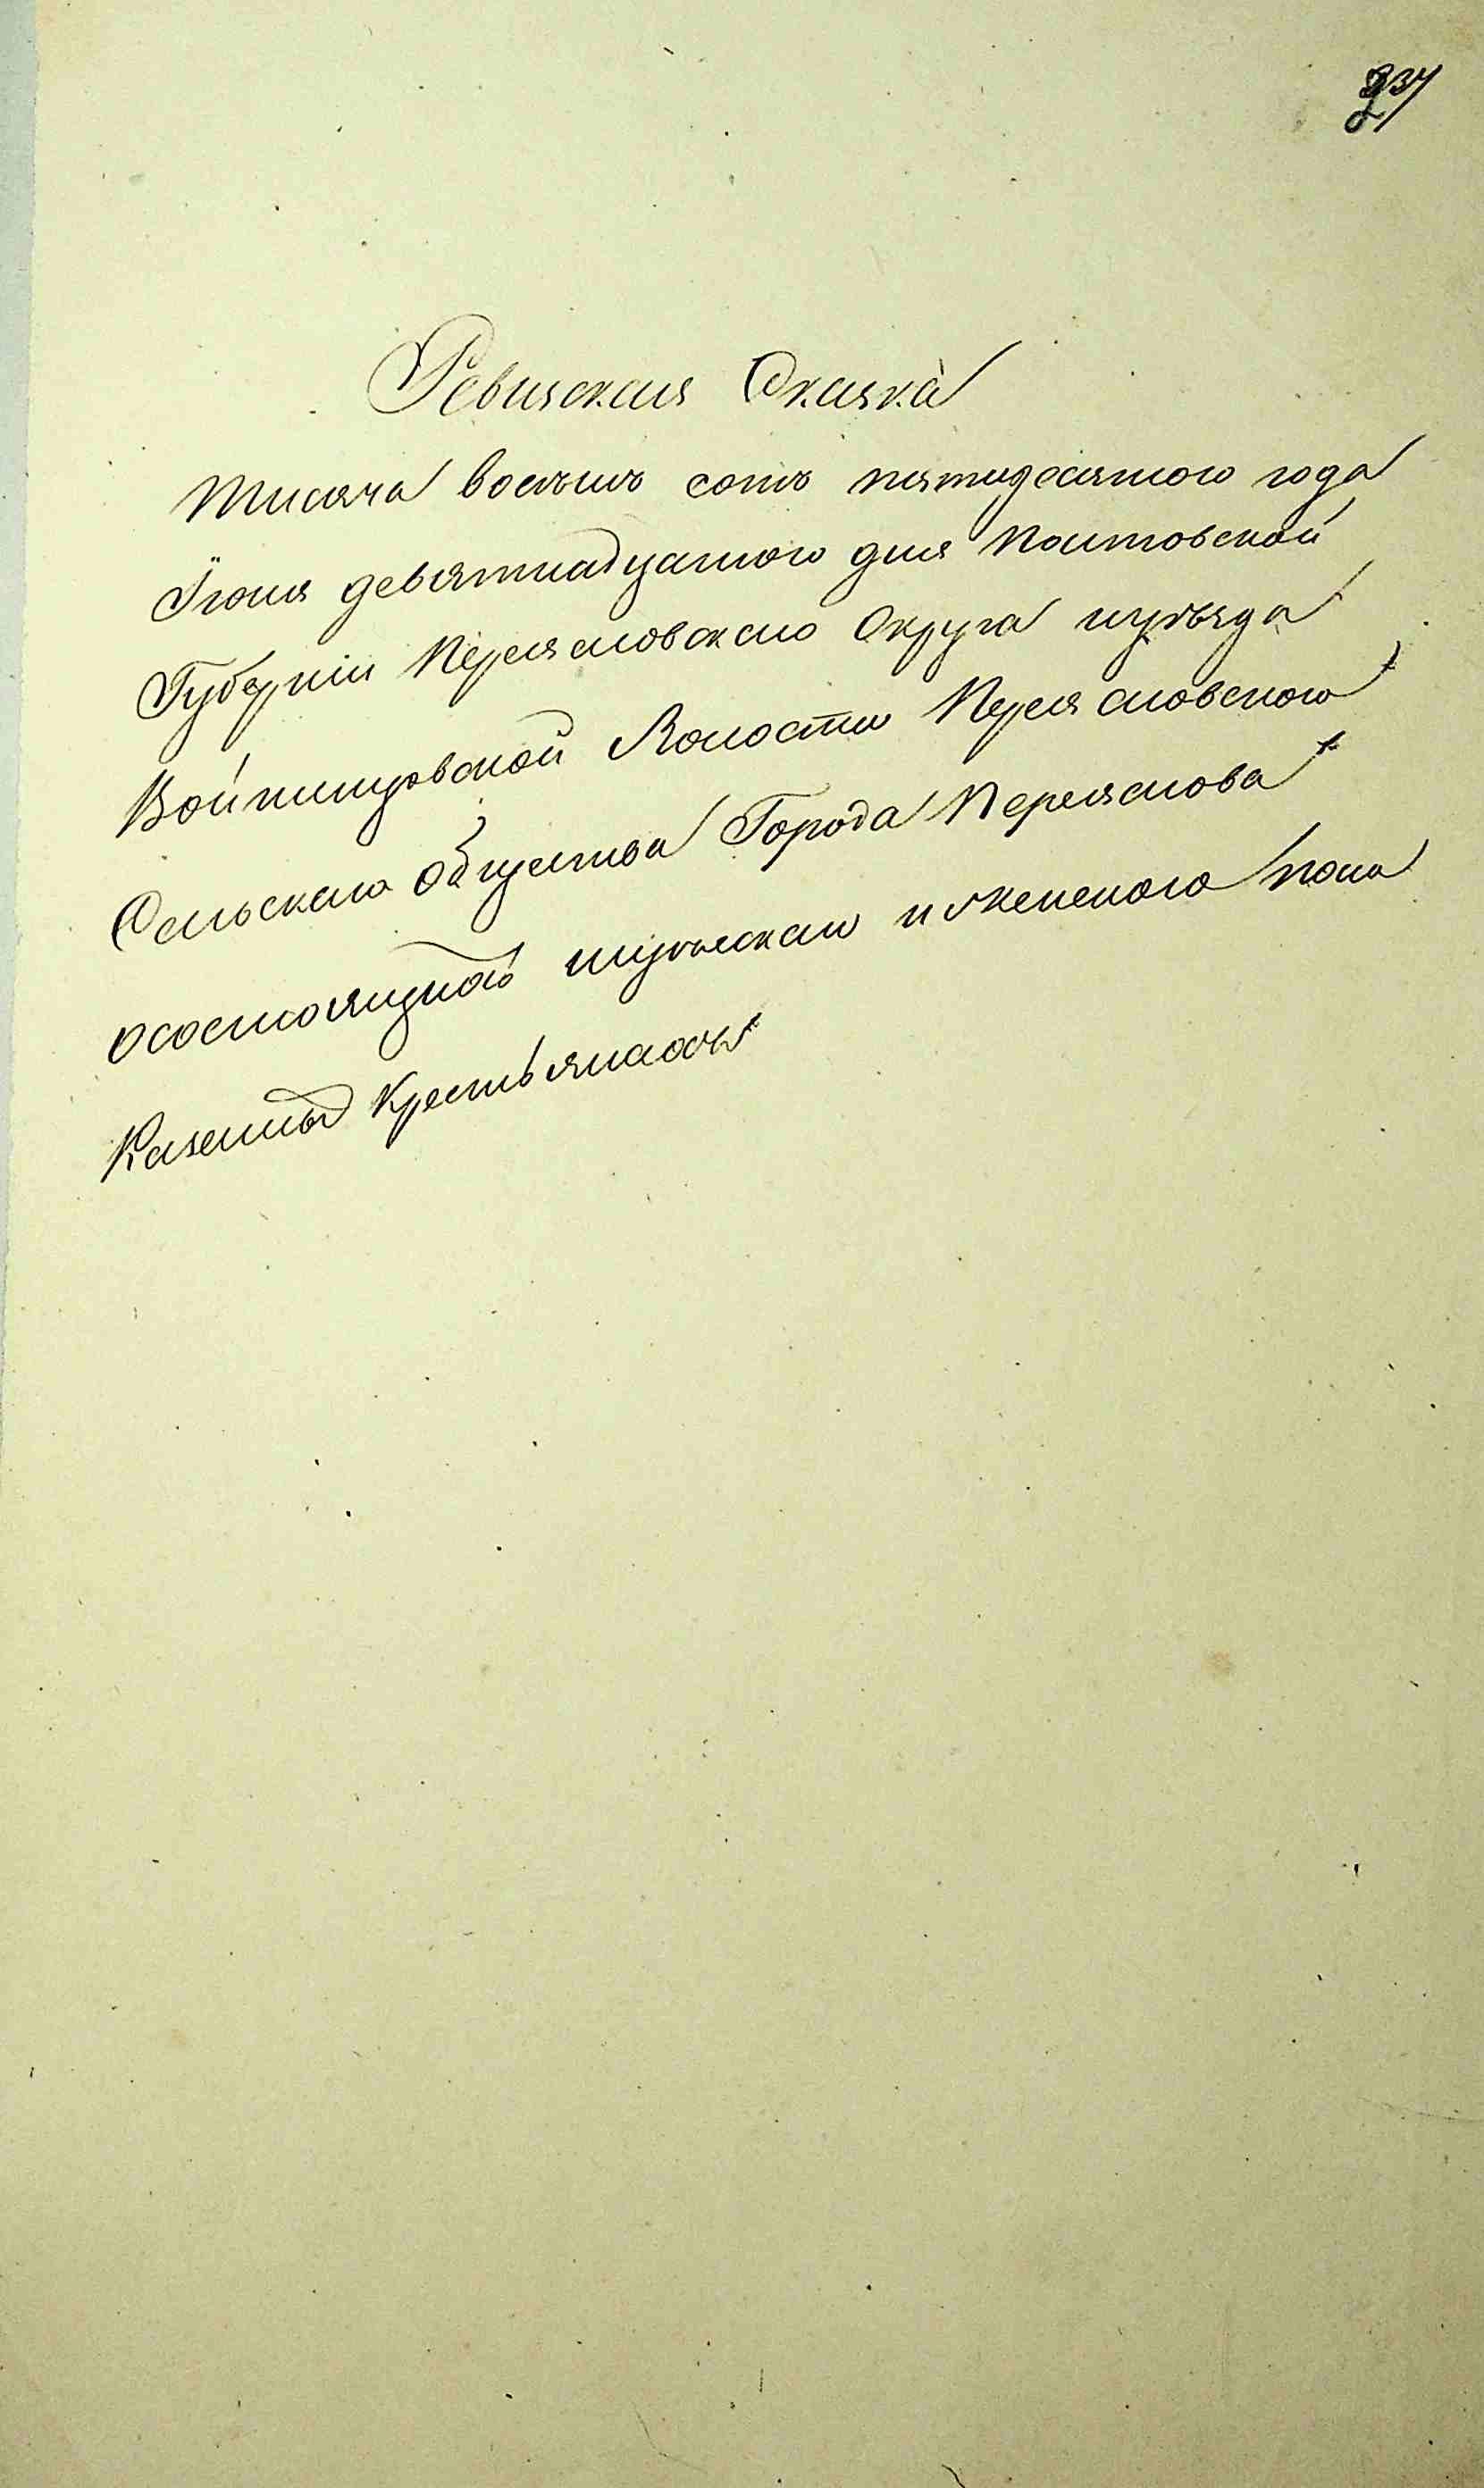 Ревизская Сказка
тисяча восемь сотъ пятидесятого года
Іюня девятнадцатого дня Полтовской
Губерніи Переясловскаго Округа иуѣзда
Войтинцовской Волости Переясловского
Сельскаго общества Города Переяслова
осостоящихъ мужескаго иженского пола
Казенныхъ Крестьянахъ